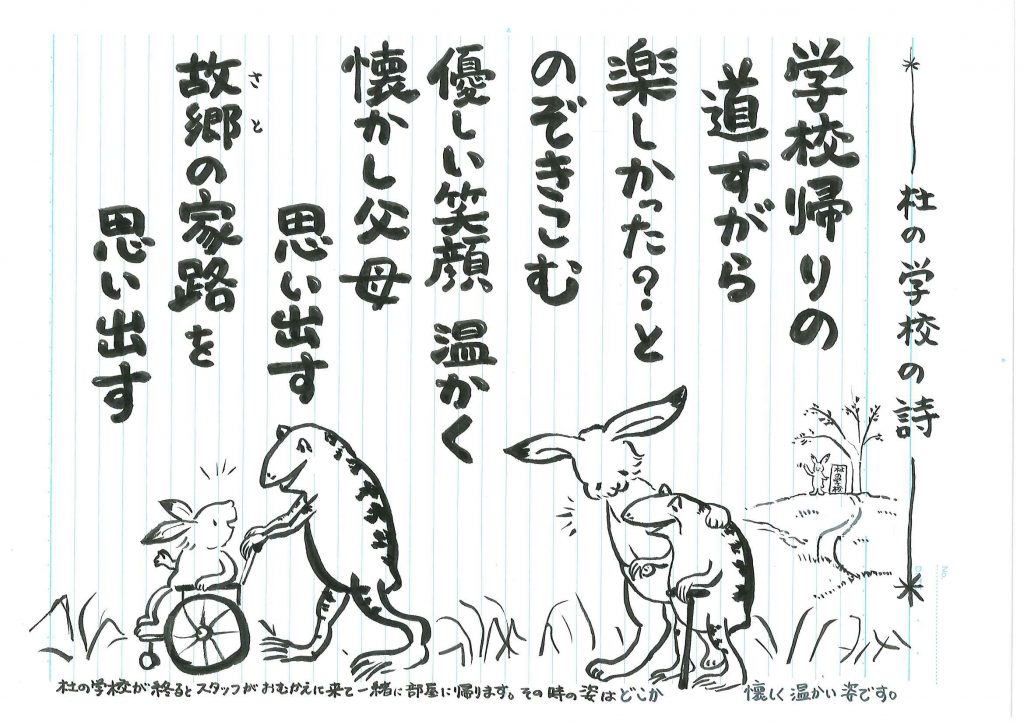 杜の学校の詩
学校帰りの
道すがら
楽しかった?と
のぞきこむ
優しい笑顔 温かく
懐かし父母
思い出す
故郷の家路を
さと
思い出す
杜の学校
杜の学校が終るとスタッフがおむかえに来て一緒に部屋に帰ります。その時の姿はどこか 懐しく温かい姿です。
No.